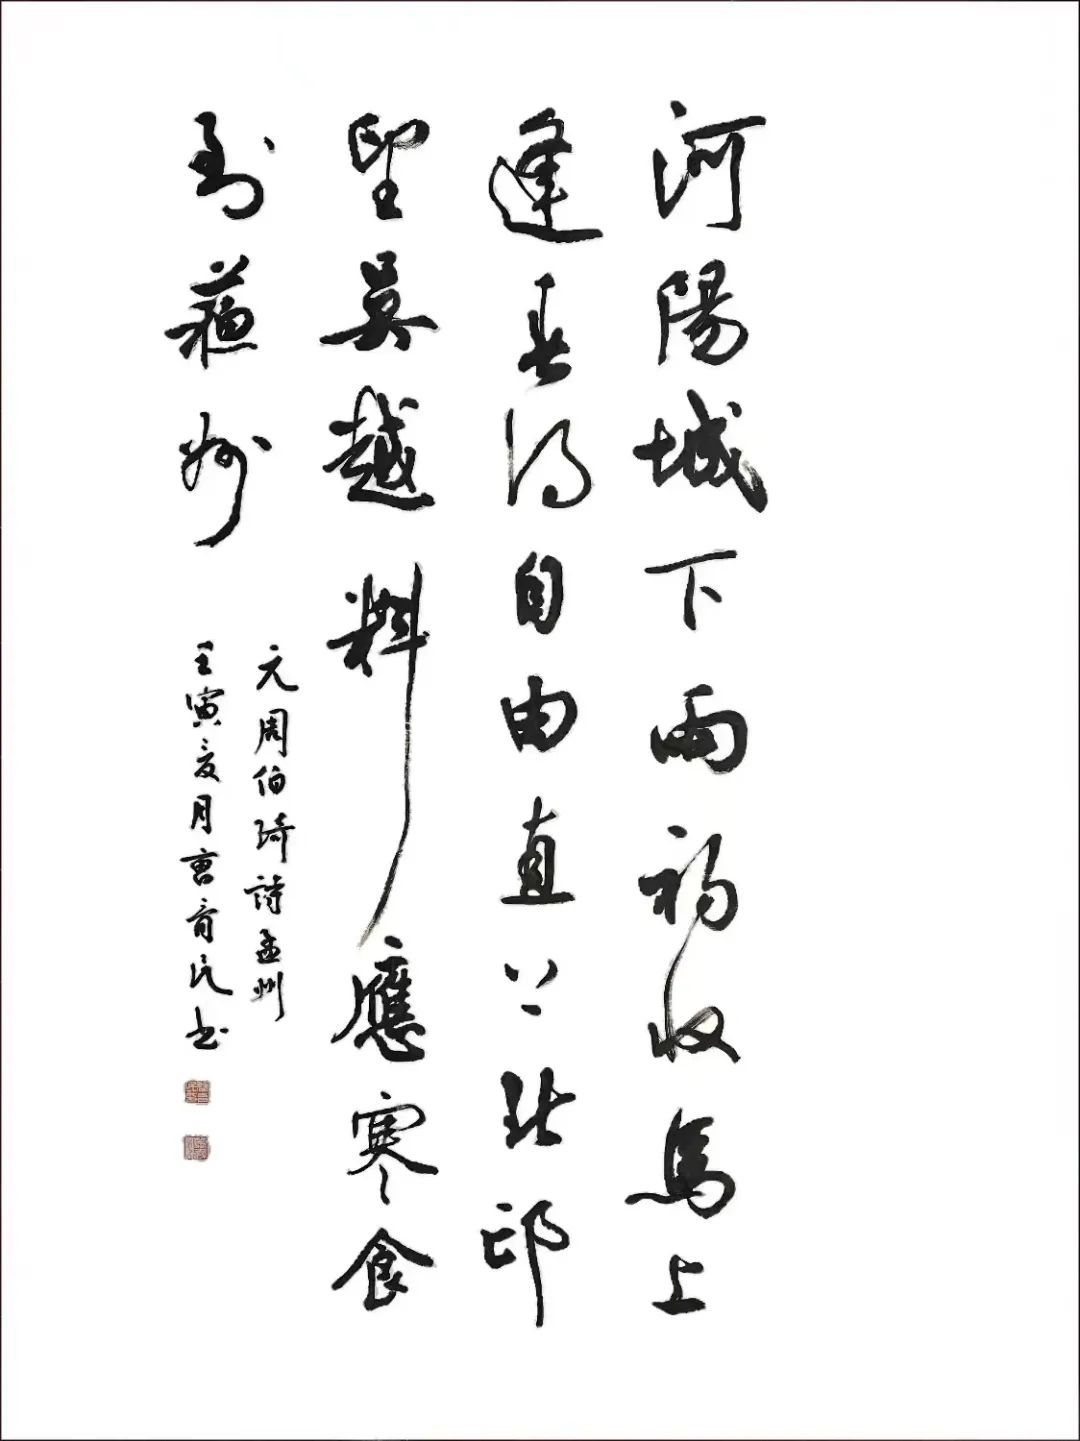 河陽城下雨初收馬上
逢春得自由直上北邙
望吳越料應寒食
到蘇州
元周伯琦詩孟州
壬寅亥月曹育民书